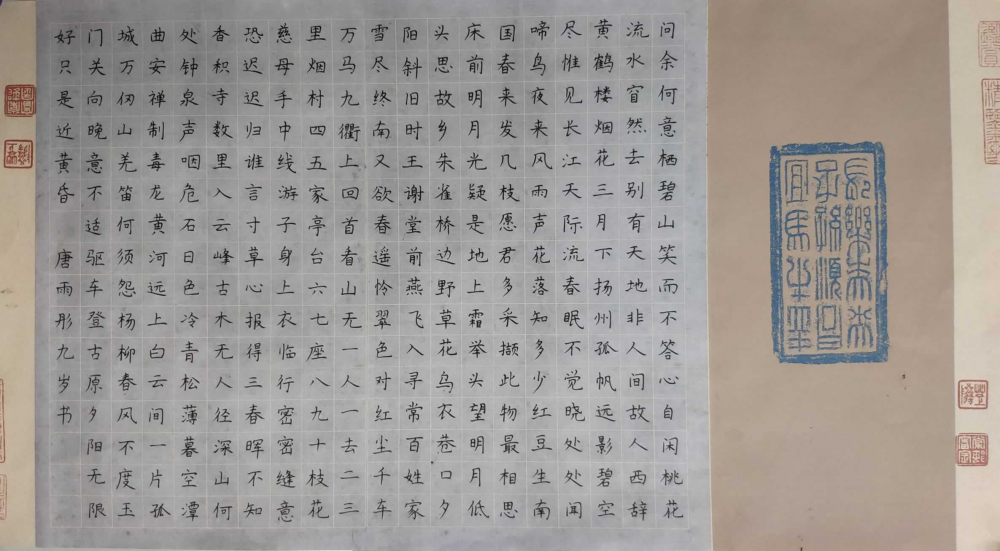 问余何意栖碧山笑而不答心自闲桃花
流水窅然去别有天地非人间故人西辞
黄鹤楼烟花三月下扬州孤帆远影碧空
尽惟见长江天际流春眠不觉晓处处闻
啼鸟夜来风雨声花落知多少红豆生南
国春来发几枝愿君多采撷此物最相思
床前明月光疑是地上霜举头望明月低
头思故乡朱雀桥边野草花乌衣巷口夕
阳斜旧时王谢堂前燕飞入寻常百姓家
雪尽终南又欲春遥怜翠色对红尘千车
万马九衢上回首看山无一人一去二三
里烟村四五家亭台六七座八九十枝花
慈母手中线游子身上衣临行密密缝意
恐迟迟归谁言寸草心报得三春晖不知
香积寺数里入云峰古木无人径深山何
处钟泉声咽危石日色冷青松薄暮空潭
曲安禅制毒龙黄河远上白云间一片孤
城万仞山羌笛何须怨杨柳春风不度玉
门关向晚意不适驱车登古原夕阳无限
好只是近黄昏 唐雨彤九岁书
長樂未央
子孫順昌
宜馬牛羊